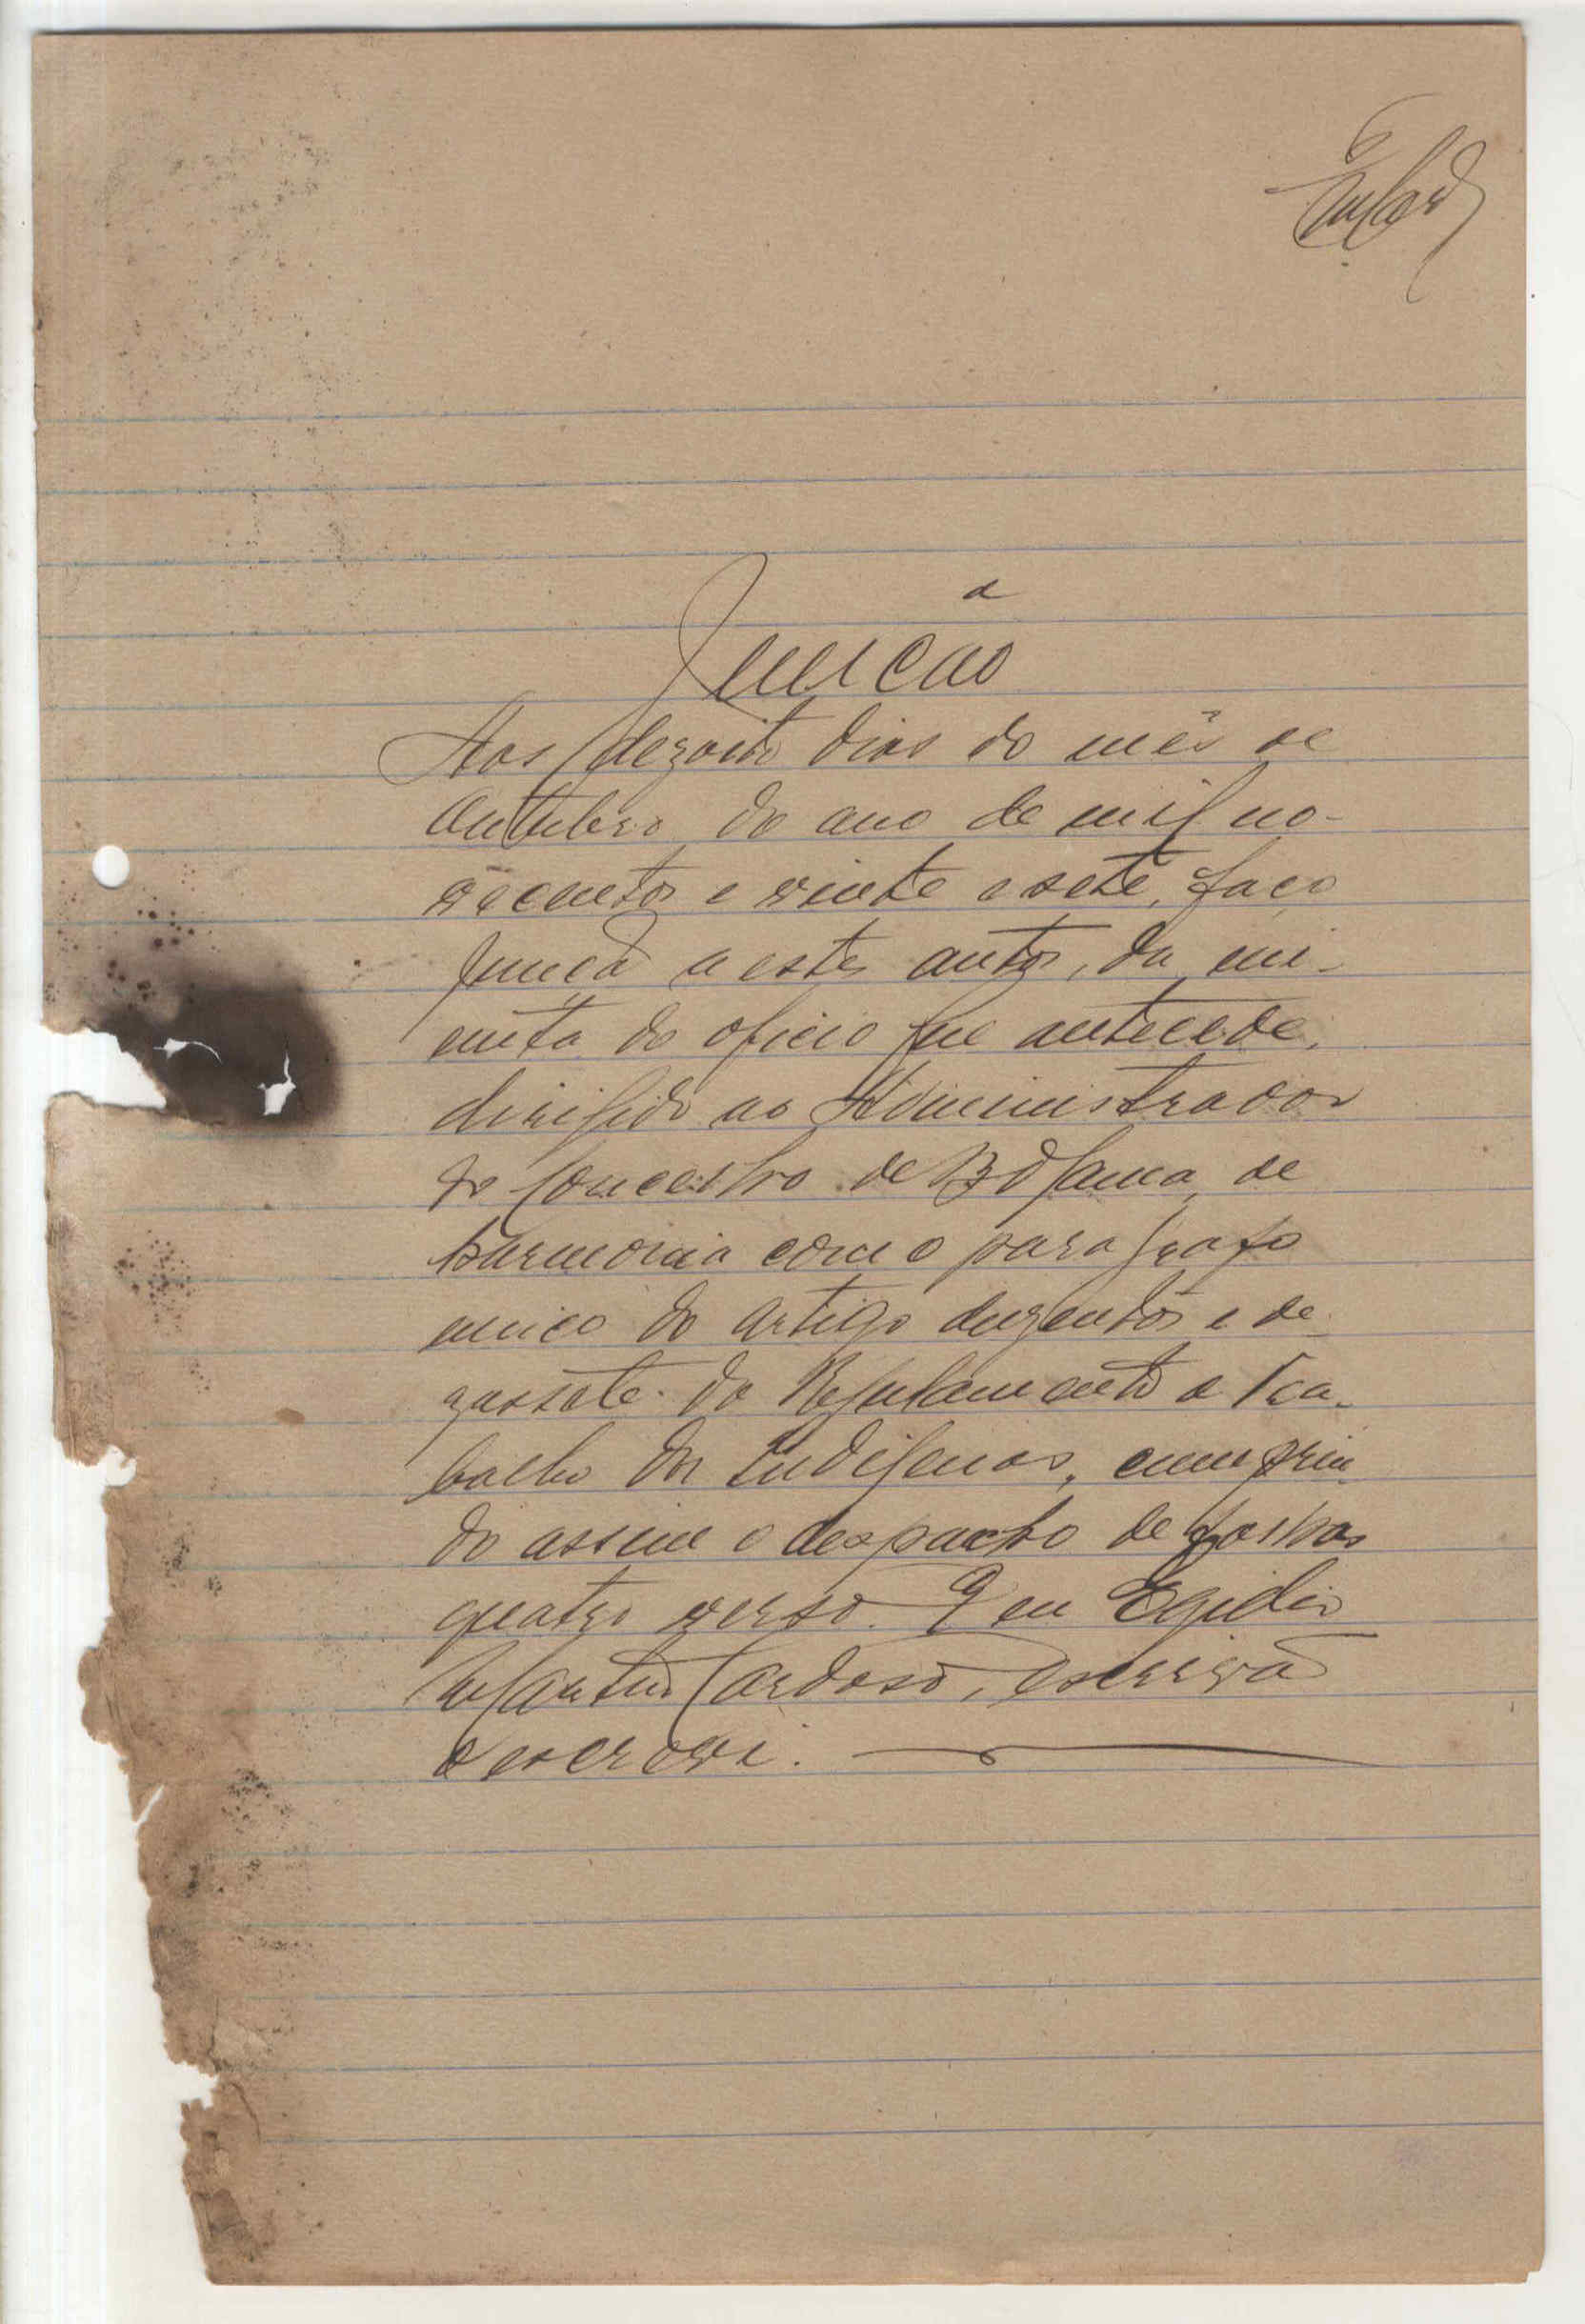 Junção
Aos dezoito dias do mês de
Outubro do ano de mil no-
vecentos e vinte e sete, faço
junção a estes autos, da mi-
nuta do oficio que antecede,
dirigido ao Administrador
do Concelho de Bolama, de
harmonia com o paragrafo
unico do artigo duzentos e de-
zassete do Regulamento e Tra-
balho dos Indigenas, cumprin-
do assim o despacho de folhas
quatro verso. E eu Egidio
Martins Cardoso, escrivão
o escrevi.